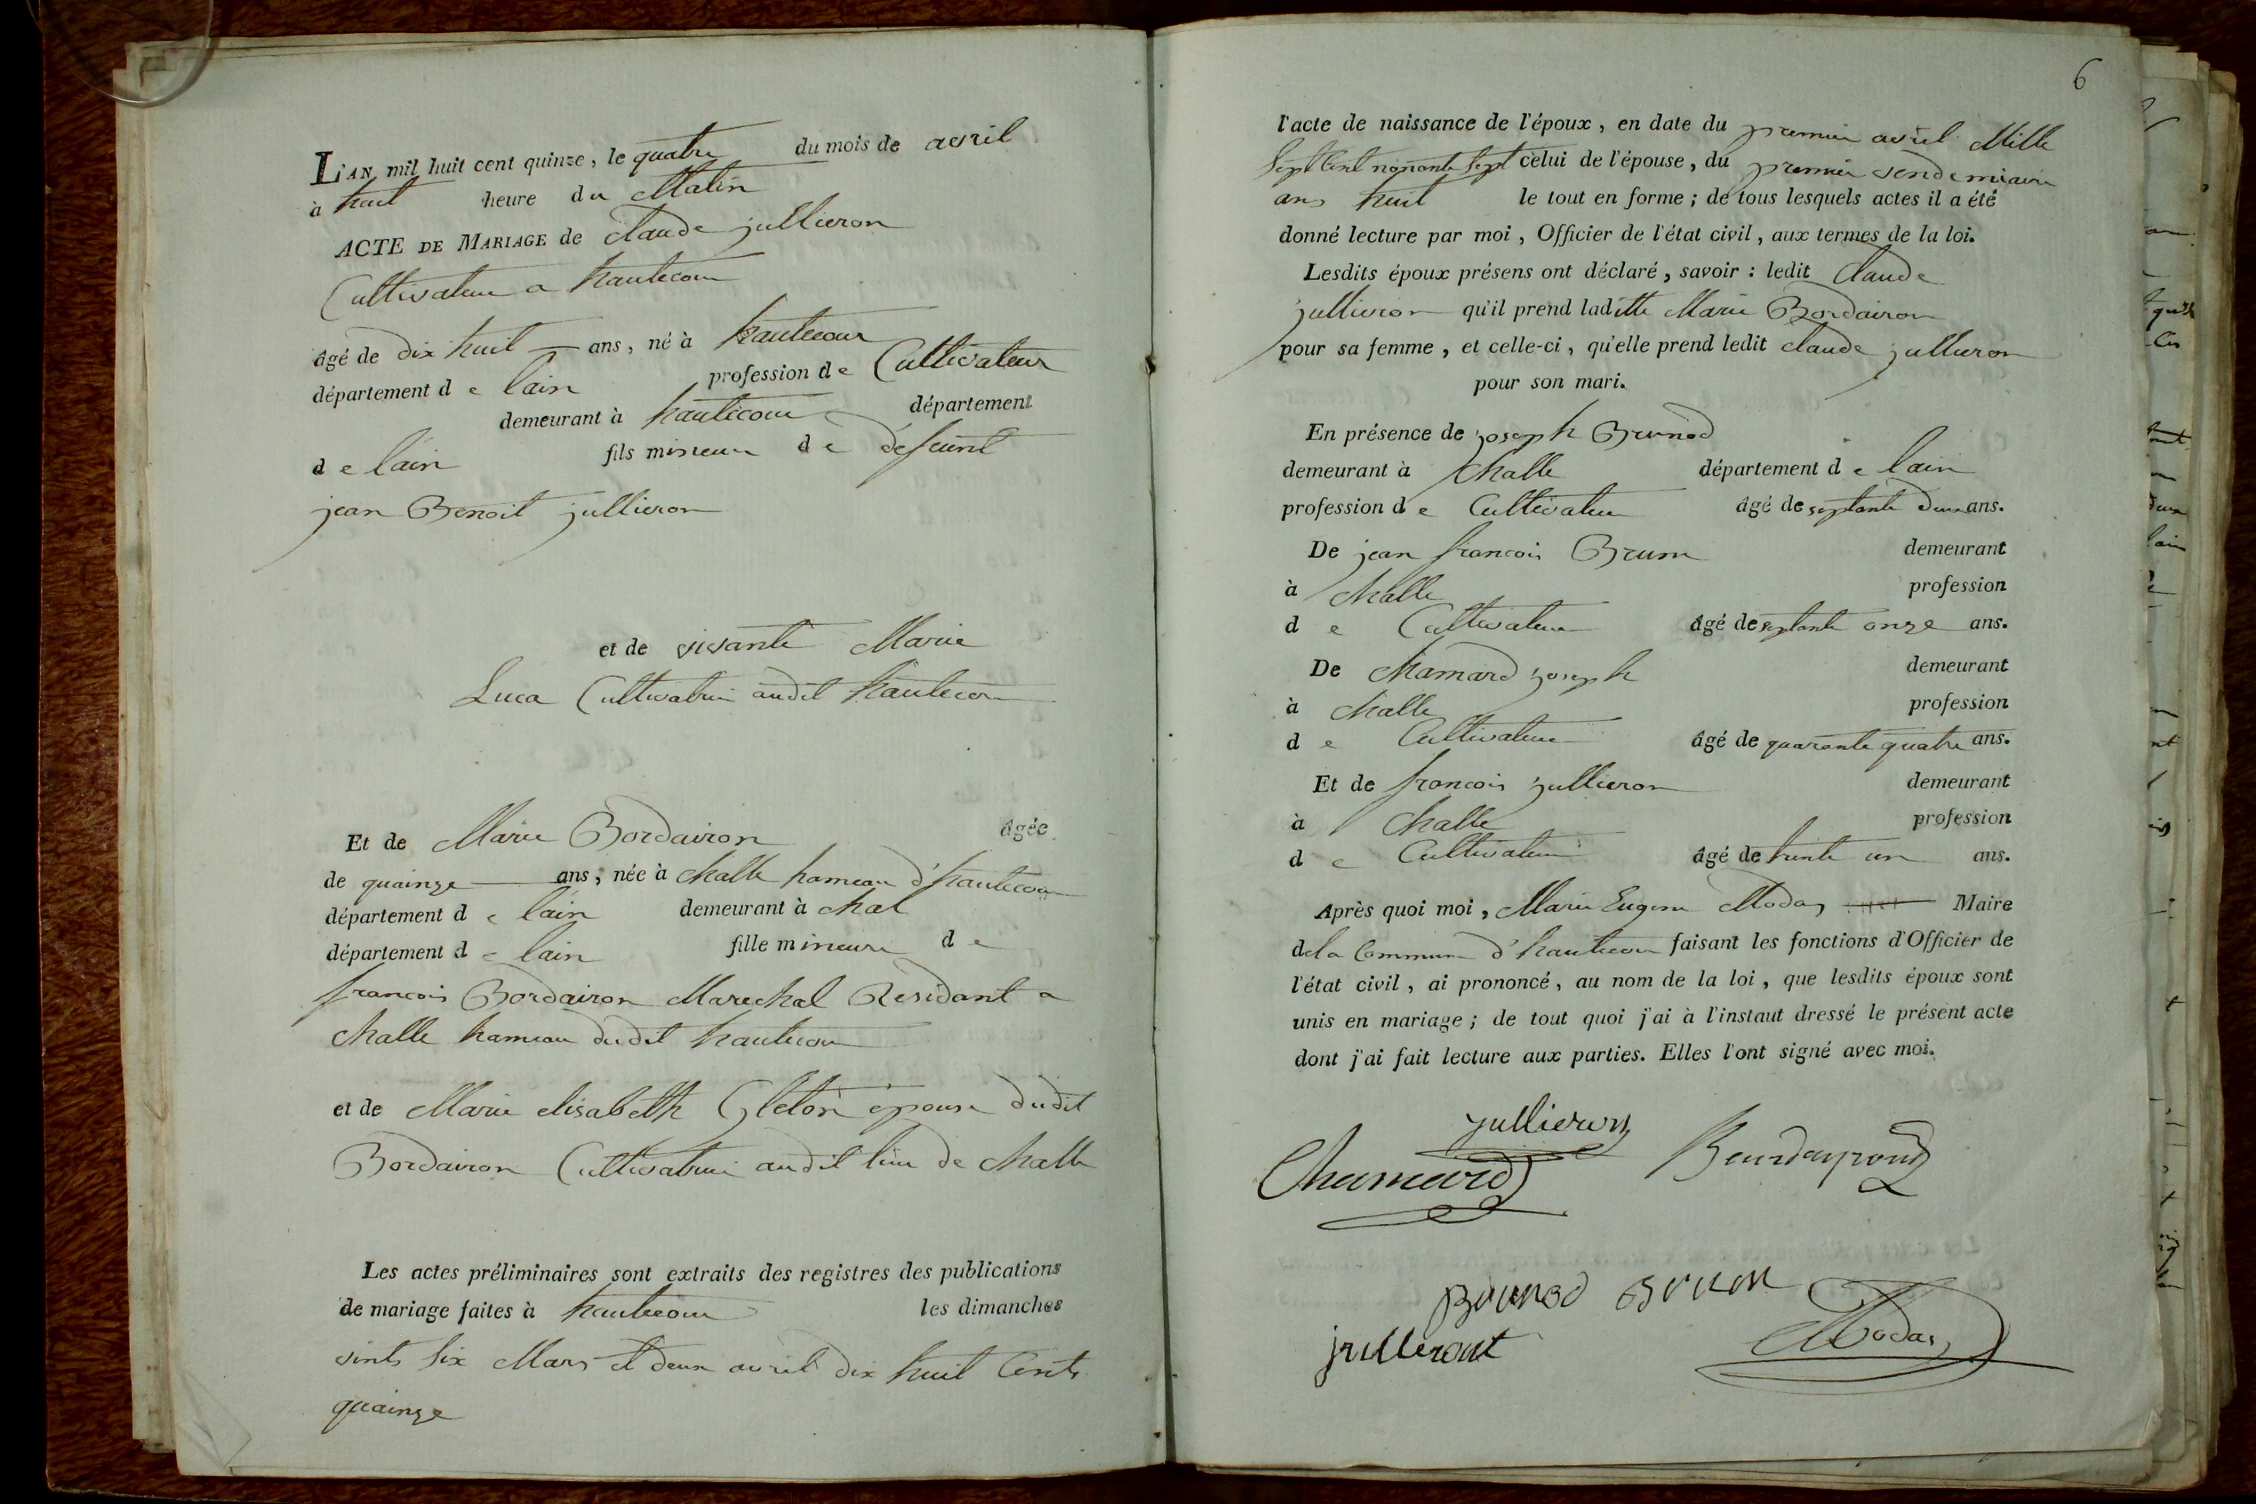 L'AN mil huit cent quinze, le quatre du mois de avril
à huit heure du Matin
ACTE DE MARIAGE de claude jullieron
Cultivateur a hautecour
âgé de dix huit ans, né à hautecour
département de lain profession de Cultivateur
demeurant à hautecour département
de lain fils mineur de defunt
jean Benoit jullieron
et de vivante Marie
Luca Cultivatrice audit hautecour
Et de Marie Bordairon âgée
de quainze ans, née à challe hameau d'hautecour
département de lain demeurant à chal
département de lain fille mineure de
francois Bordairon Marechal Residant a
challe hameau dudit hautecour
et de Marie elisabeth Gleton épouse dudit
Bordairon Cultivatrice audit lieu de challe
Les actes préliminaires sont extraits des registres des publications
de mariage faites à hautecour les dimanches
vints six Mars et deux avril dix huit Cents
quainze
6
l'acte de naissance de l'époux, en date du premier avril Mille
Sept Cent nonante Sept celui de l'épouse, du premier vendemiaire
ans huit le tout en forme; de tous lesquels actes il a été
donné lecture par moi, Officier de l'état civil, aux termes de la loi.
Lesdits époux présens ont déclaré, savoir: ledit claude
jullieron qu'il prend laditte Marie Bordairon
pour sa femme, et celle-ci, qu'elle prend ledit claude jullieron
pour son mari.
En présence de joseph Brunod
demeurant à challe département de lain
profession de Cultivateur âgé de septante deux ans.
De jean francois Brun demeurant
à challe profession
de Cultivateur âgé de septante onze ans.
De chamard joseph demeurant
à challe profession
de Cultivateur âgé de quarante quatre ans.
Et de francois jullieron demeurant
à challe profession
de Cultivateur âgé de trente un ans.
Après quoi moi, Marie Eugene Modas Maire
dela Commune d'hautecour faisant les fonctions d'Officier de
l'état civil, ai prononcé, au nom de la loi, que lesdits époux sont
unis en mariage; de tout quoi j'ai à l'instaut dressé le présent acte
dont j'ai fait lecture aux parties. Elles l'ont signé avec moi.
jullieron
Chamard Bourdayrond
Brunod Brun
jrulleront Modas